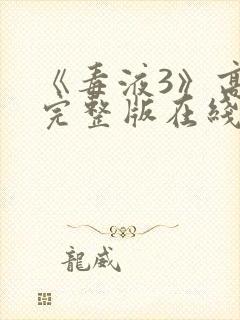 《毒液3》高
完整版在綫
龍威